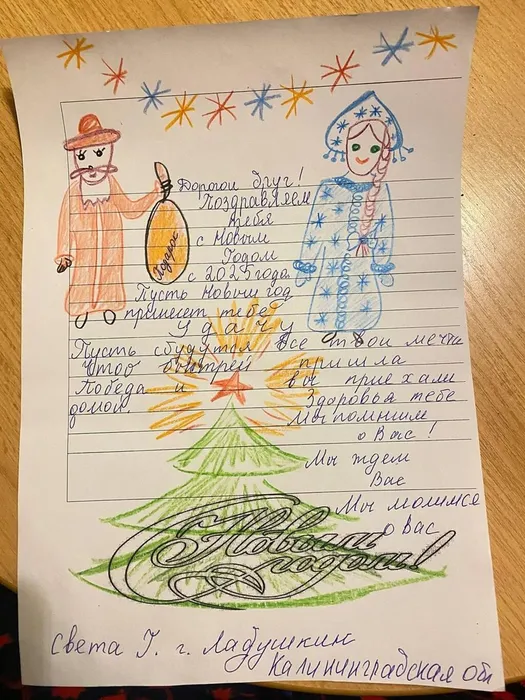 Дорогой друг!
Поздравляем
тебя
с Новым
Годом
с 2025 года
Подарок
Пусть Новым год
принесет тебе
удачу
Пусть сбудутся все твои мечты
Чтоб быстрей пришла
Победа и вы приехали
домой. Здоровья тебе
Мы помним
о Вас!
Мы ждем
Вас
Мы молимся
о Вас
С Новым
годом!
Света Г. г. Лабушкин
Калининградская обл